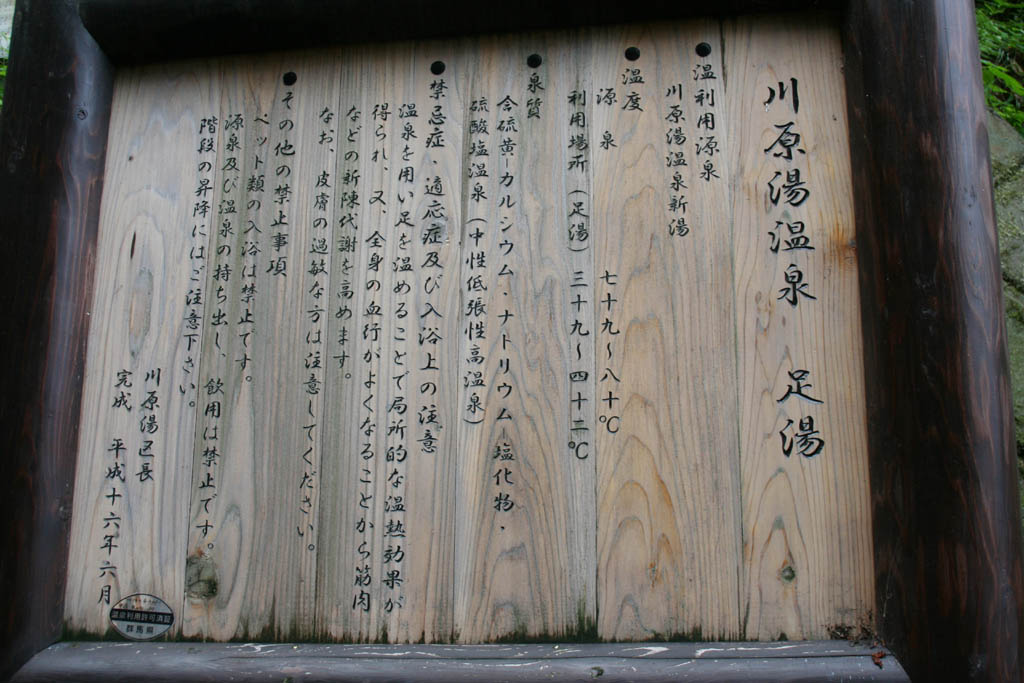 川原湯温泉 足湯
温利用源泉
川原湯温泉新湯
温度
源泉 七十九～八十℃
利用場所（足湯）三十九～四十二℃
泉質
含硫黄ーカルシウム、ナトリウム塩化物・
硫酸塩温泉（中性低張性高温泉）
禁忌症、適応症及び入浴上の注意
温泉を用い足を温めることで局所的な温熱効果が
得られ、又、全身の血行がよくなることから筋肉
などの新陳代謝を高めます。
なお、皮膚の過敏な方は注意してください。
その他の禁止事項
ペット類の入浴は禁止です。
源泉及び温泉の持ち出し、飲用は禁止です。
階段の昇降にはご注意下さい。
川原湯区長
完成 平成十六年六月
温泉利用許可済証
群馬県